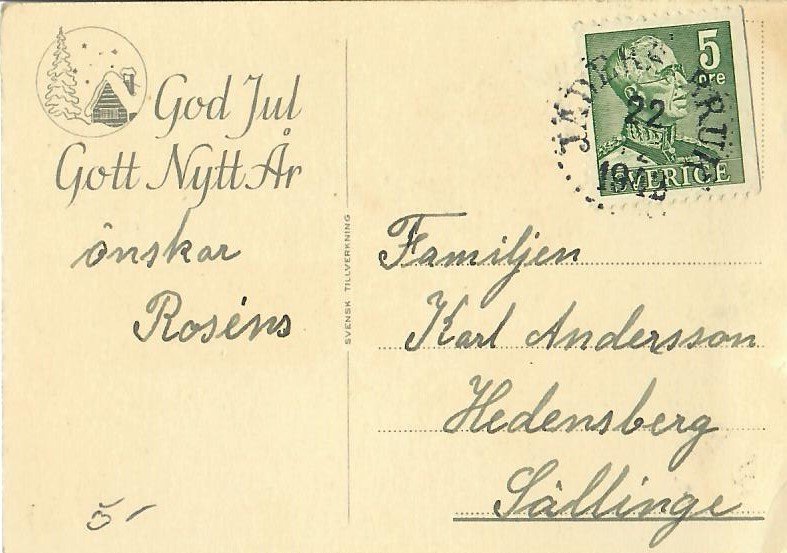 God Jul
Gott Nytt År
önskar
Roséns
SVENSK TILLVERKNING
5 öre
SVERIGE
JÄDERS BRUK
22
Familjen
Karl Andersson
Hedensberg
Sällinge
5-